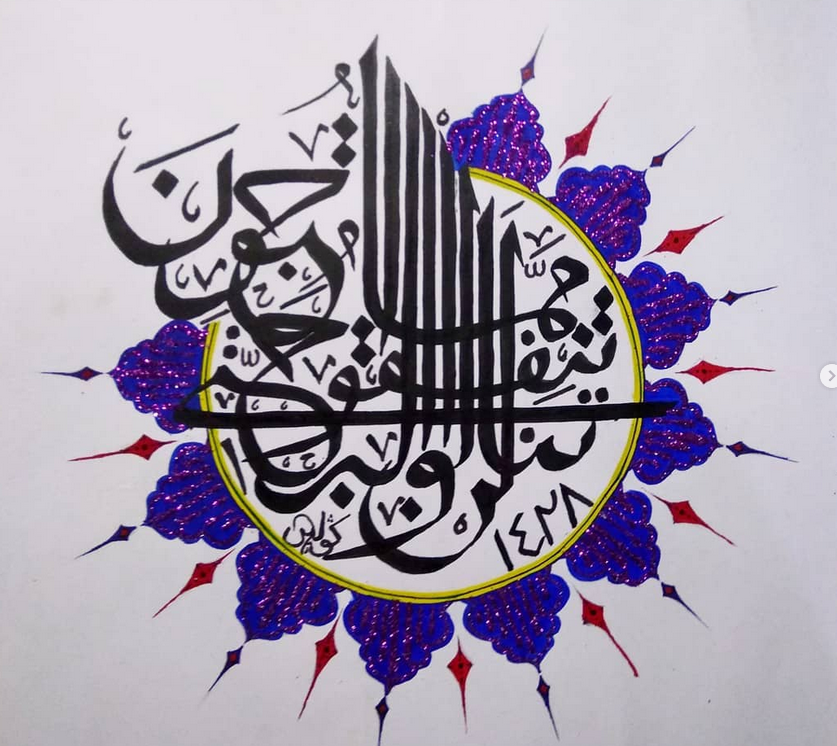 لن تنالوا البر حتى تنفقوا مما تحبون
١٤٢٨